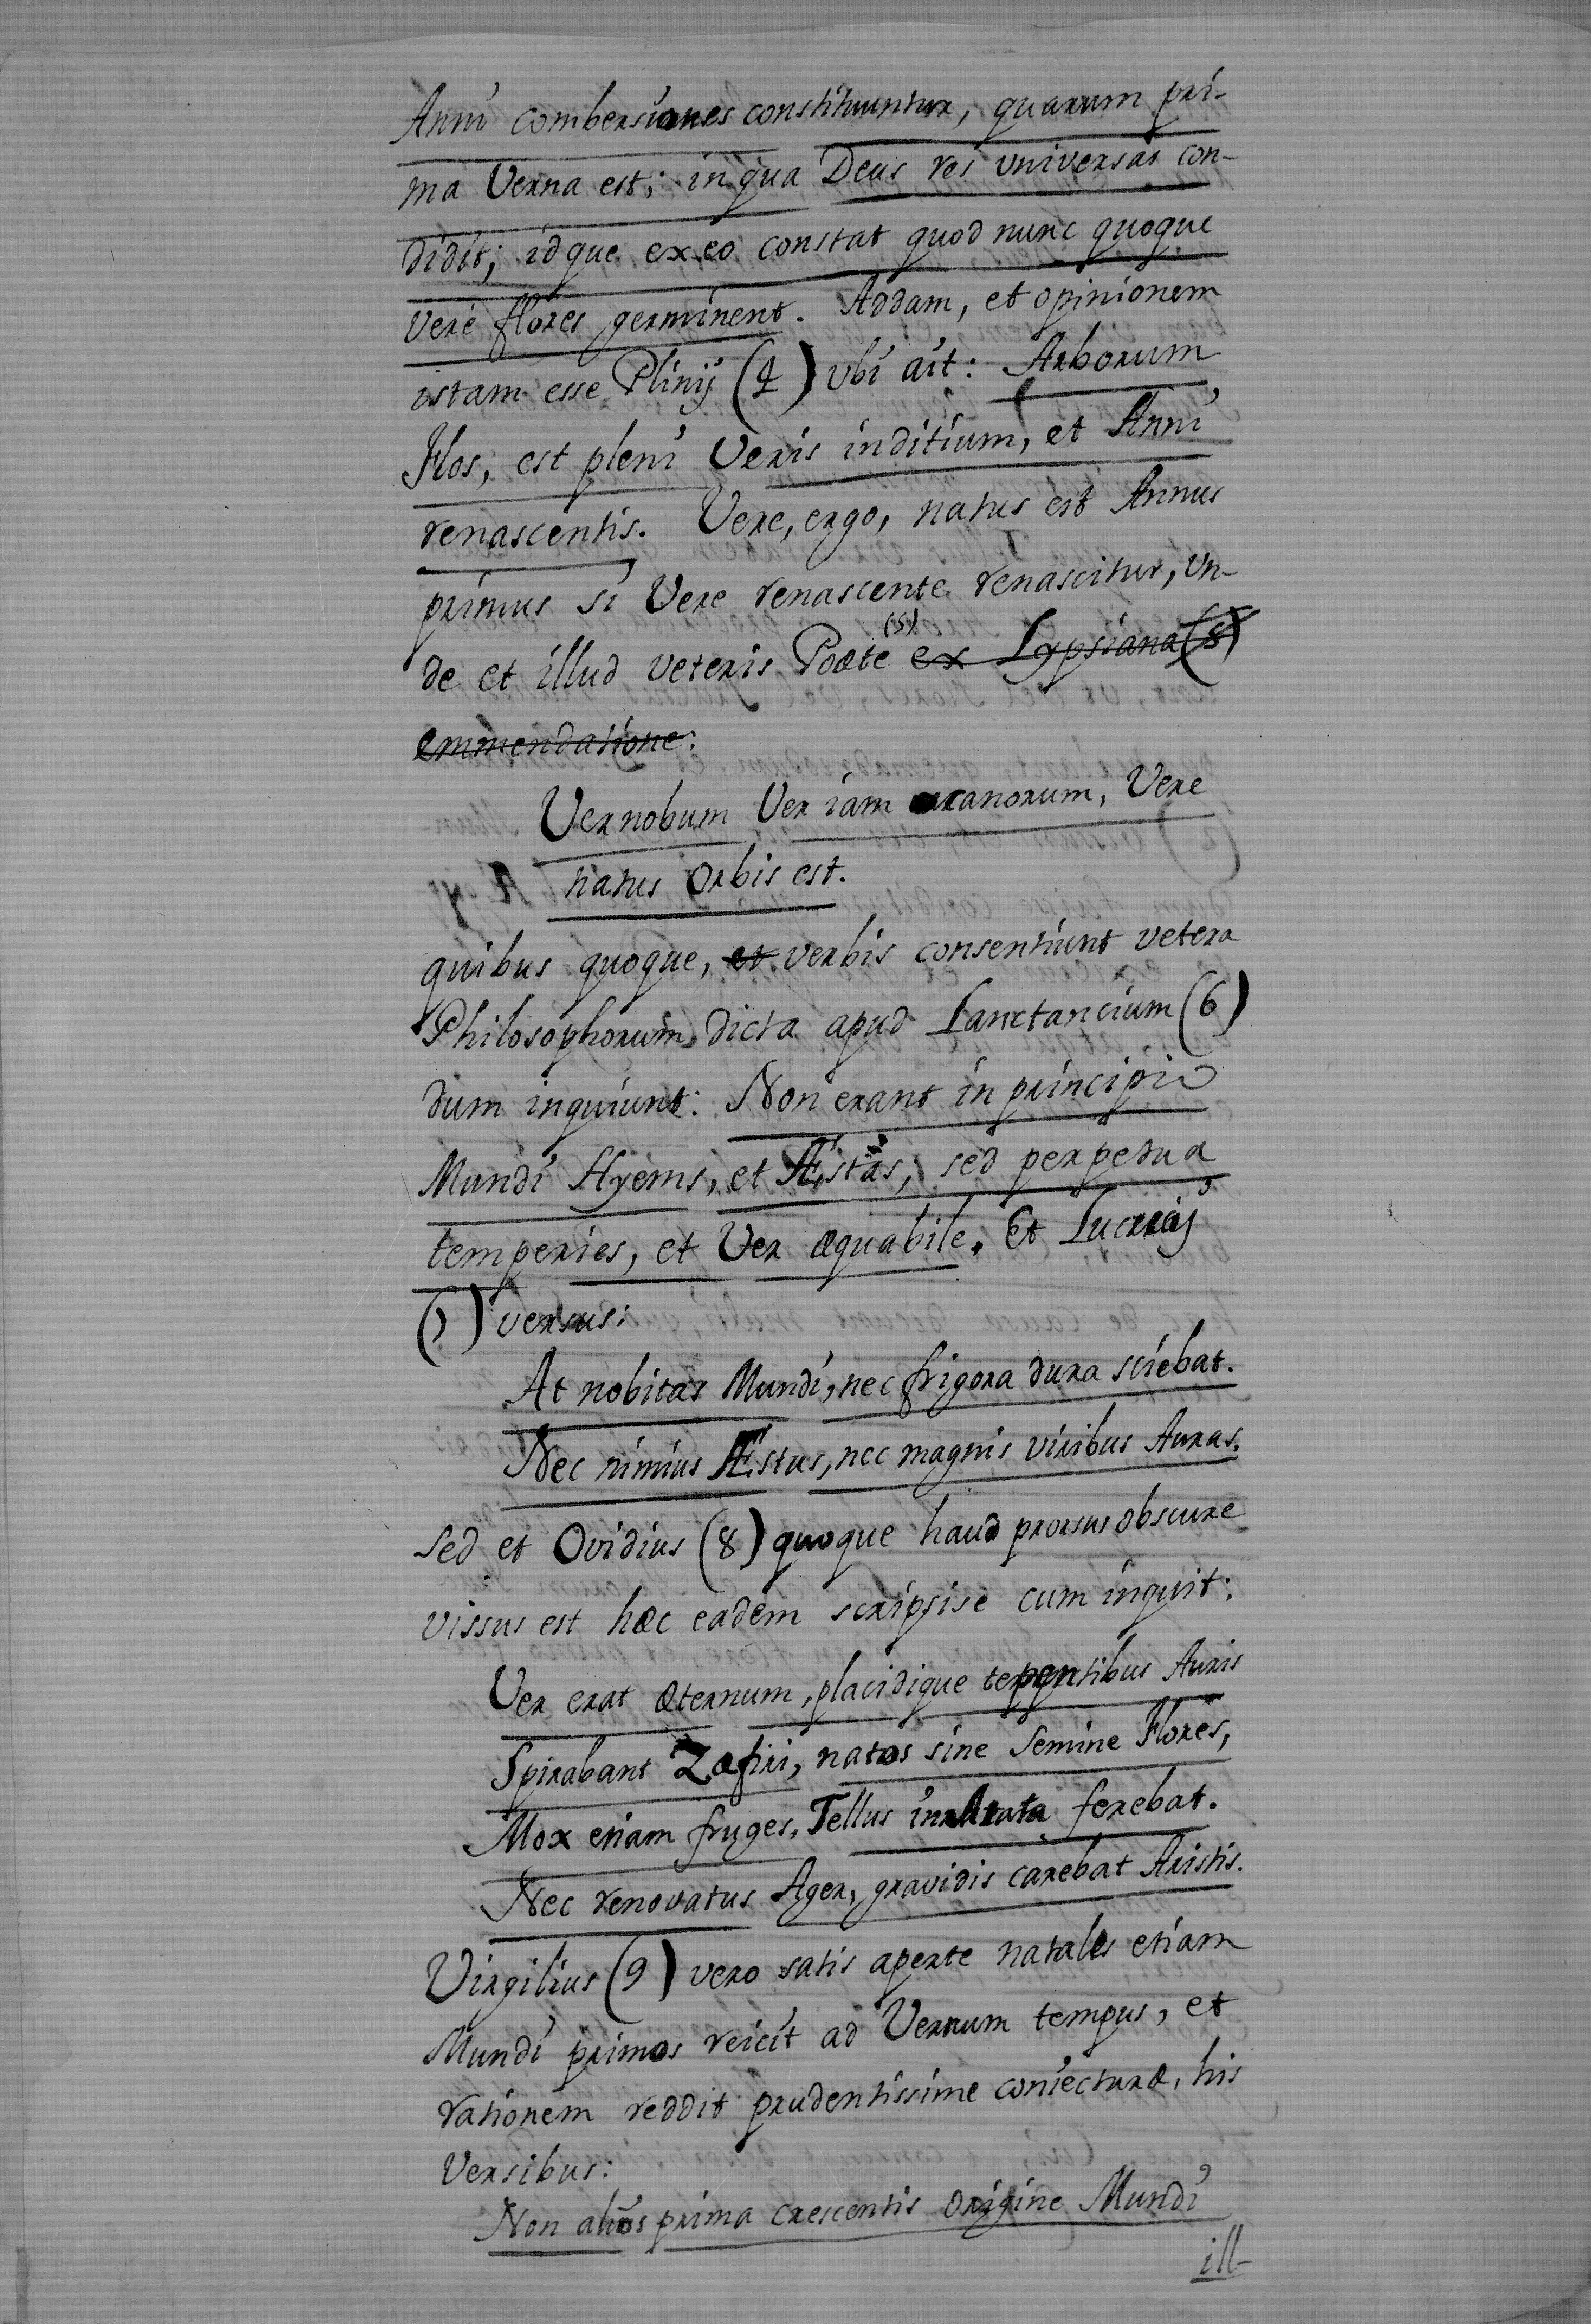 Anni combersiones constituuntur, quarum pri-
ma Verna est; in qua Deus res universas con-
didit; idque ex eo constat quod nunc quoque
vere flores germinent. Addam, et opinionem
istam esse Plinij (4) vbi ait: Arborum
Flos, est pleni Veris inditium, et Anni
renascentis. Vere, ergo, natus est Annus
primus si Vere renascente renascitur, vn-
de et illud veteris Poæte (5) ex Lypsiana (5)
emmendatione:
Ver nobum Ver iam canorum, Vere
natus Orbis est.
quibus quoque, et verbis consentiunt vetera
Philosophorum dicta apud Lanctancium (6)
dum inquiunt: Non erant in principio
Mundi Hyems, et Æstas, sed perpedua
temperies, et Ver æquabile. Et Lucrecij
(7) versus:
At nobitas Mundi, nec frigora dura sciebat.
Nec nimius Æstus, nec magnis viribus Auras.
Sed et Ovidius (8) quoque haud prorsus obscure
vissus est hæc eadem scripsise cum inquit:
Ver erat æternum, placidique tepentibus Auris
Spirabant Zæfiri, natos sine Semine Flores,
Mox etiam fruges, Tellus inarata ferebat.
Nec renovatus Ager, gravidis carebat Aristis.
Virgilius (9) vero satis aperte natales etiam
Mundi primos reicit ad Vernum tempus, et
rationem reddit prudentissime coniecturæ, his
Versibus:
Non alios prima crescentis origine Mundi
ill-